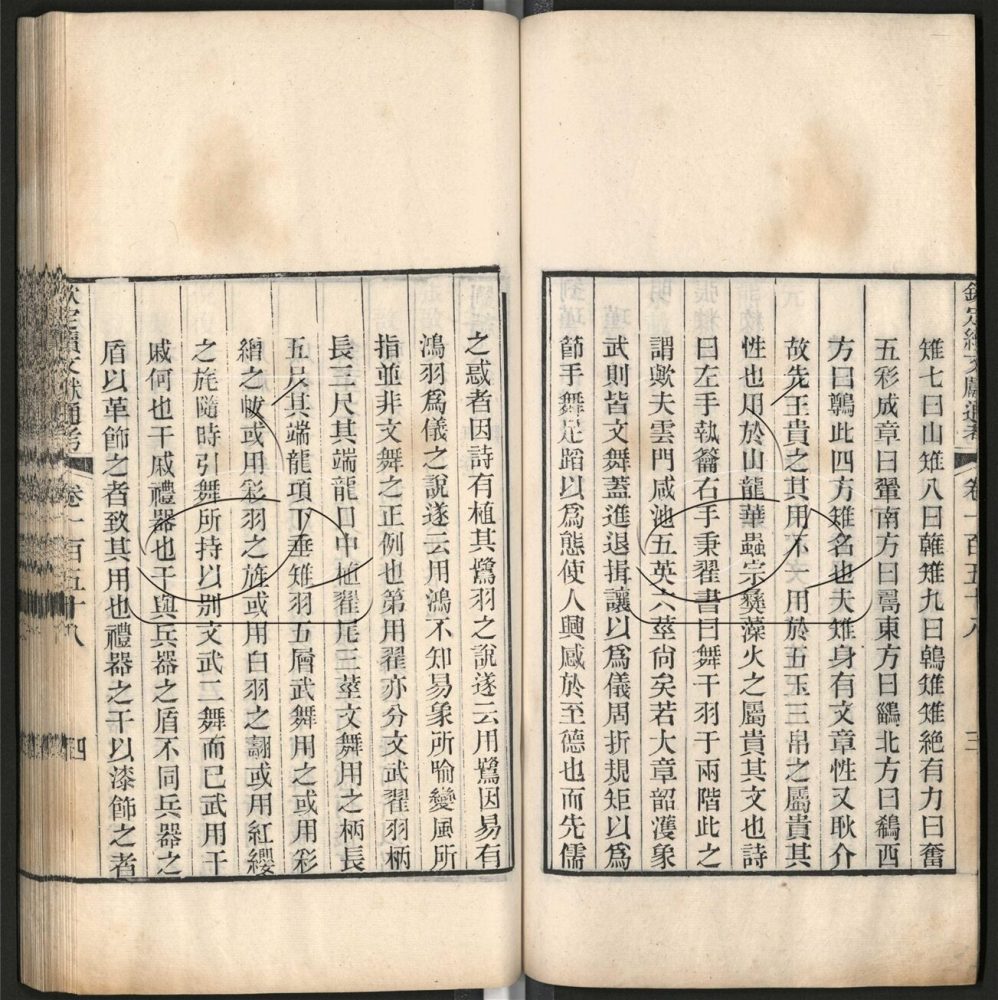 欽定續文獻通考 卷一百五十八 三
雉七曰山雉八曰雗雉九曰鵫雉雉絶有力曰奮
五彩成章曰翬南方曰翯東方曰鶅北方曰鵗西
方曰鷷此四方雉名也夫雉身有文章性又耿介
故先王貴之其用不一用於五玉三帛之屬貴其
性也用於山龍華蟲宗彝藻火之屬貴其文也詩
曰左手執籥右手秉翟書曰舞干羽于兩階此之
謂歟夫雲門咸池五英六莖尚矣若大章韶濩象
武則皆文舞蓋進退揖讓以爲儀周折規矩以爲
節手舞足蹈以爲態使人興感於至德也而先儒
之惑者因詩有植其鷺羽之說遂云用鷺因易有
鴻羽爲儀之說遂云用鴻不知易象所喻變風所
指並非文舞之正例也第用翟亦分文武翟羽柄
長三尺其端龍口中植翟尾三莖文舞用之柄長
五尺其端龍項下垂雉羽五層武舞用之或用彩
繒之帗或用彩羽之旌或用白羽之翿或用紅纓
之旄隨時引舞所持以别文武二舞而已武用干
戚何也干戚禮器也干與兵器之盾不同兵器之
盾以革飾之者致其用也禮器之干以漆飾之者
欽定續文獻通考 卷一百五十八 四